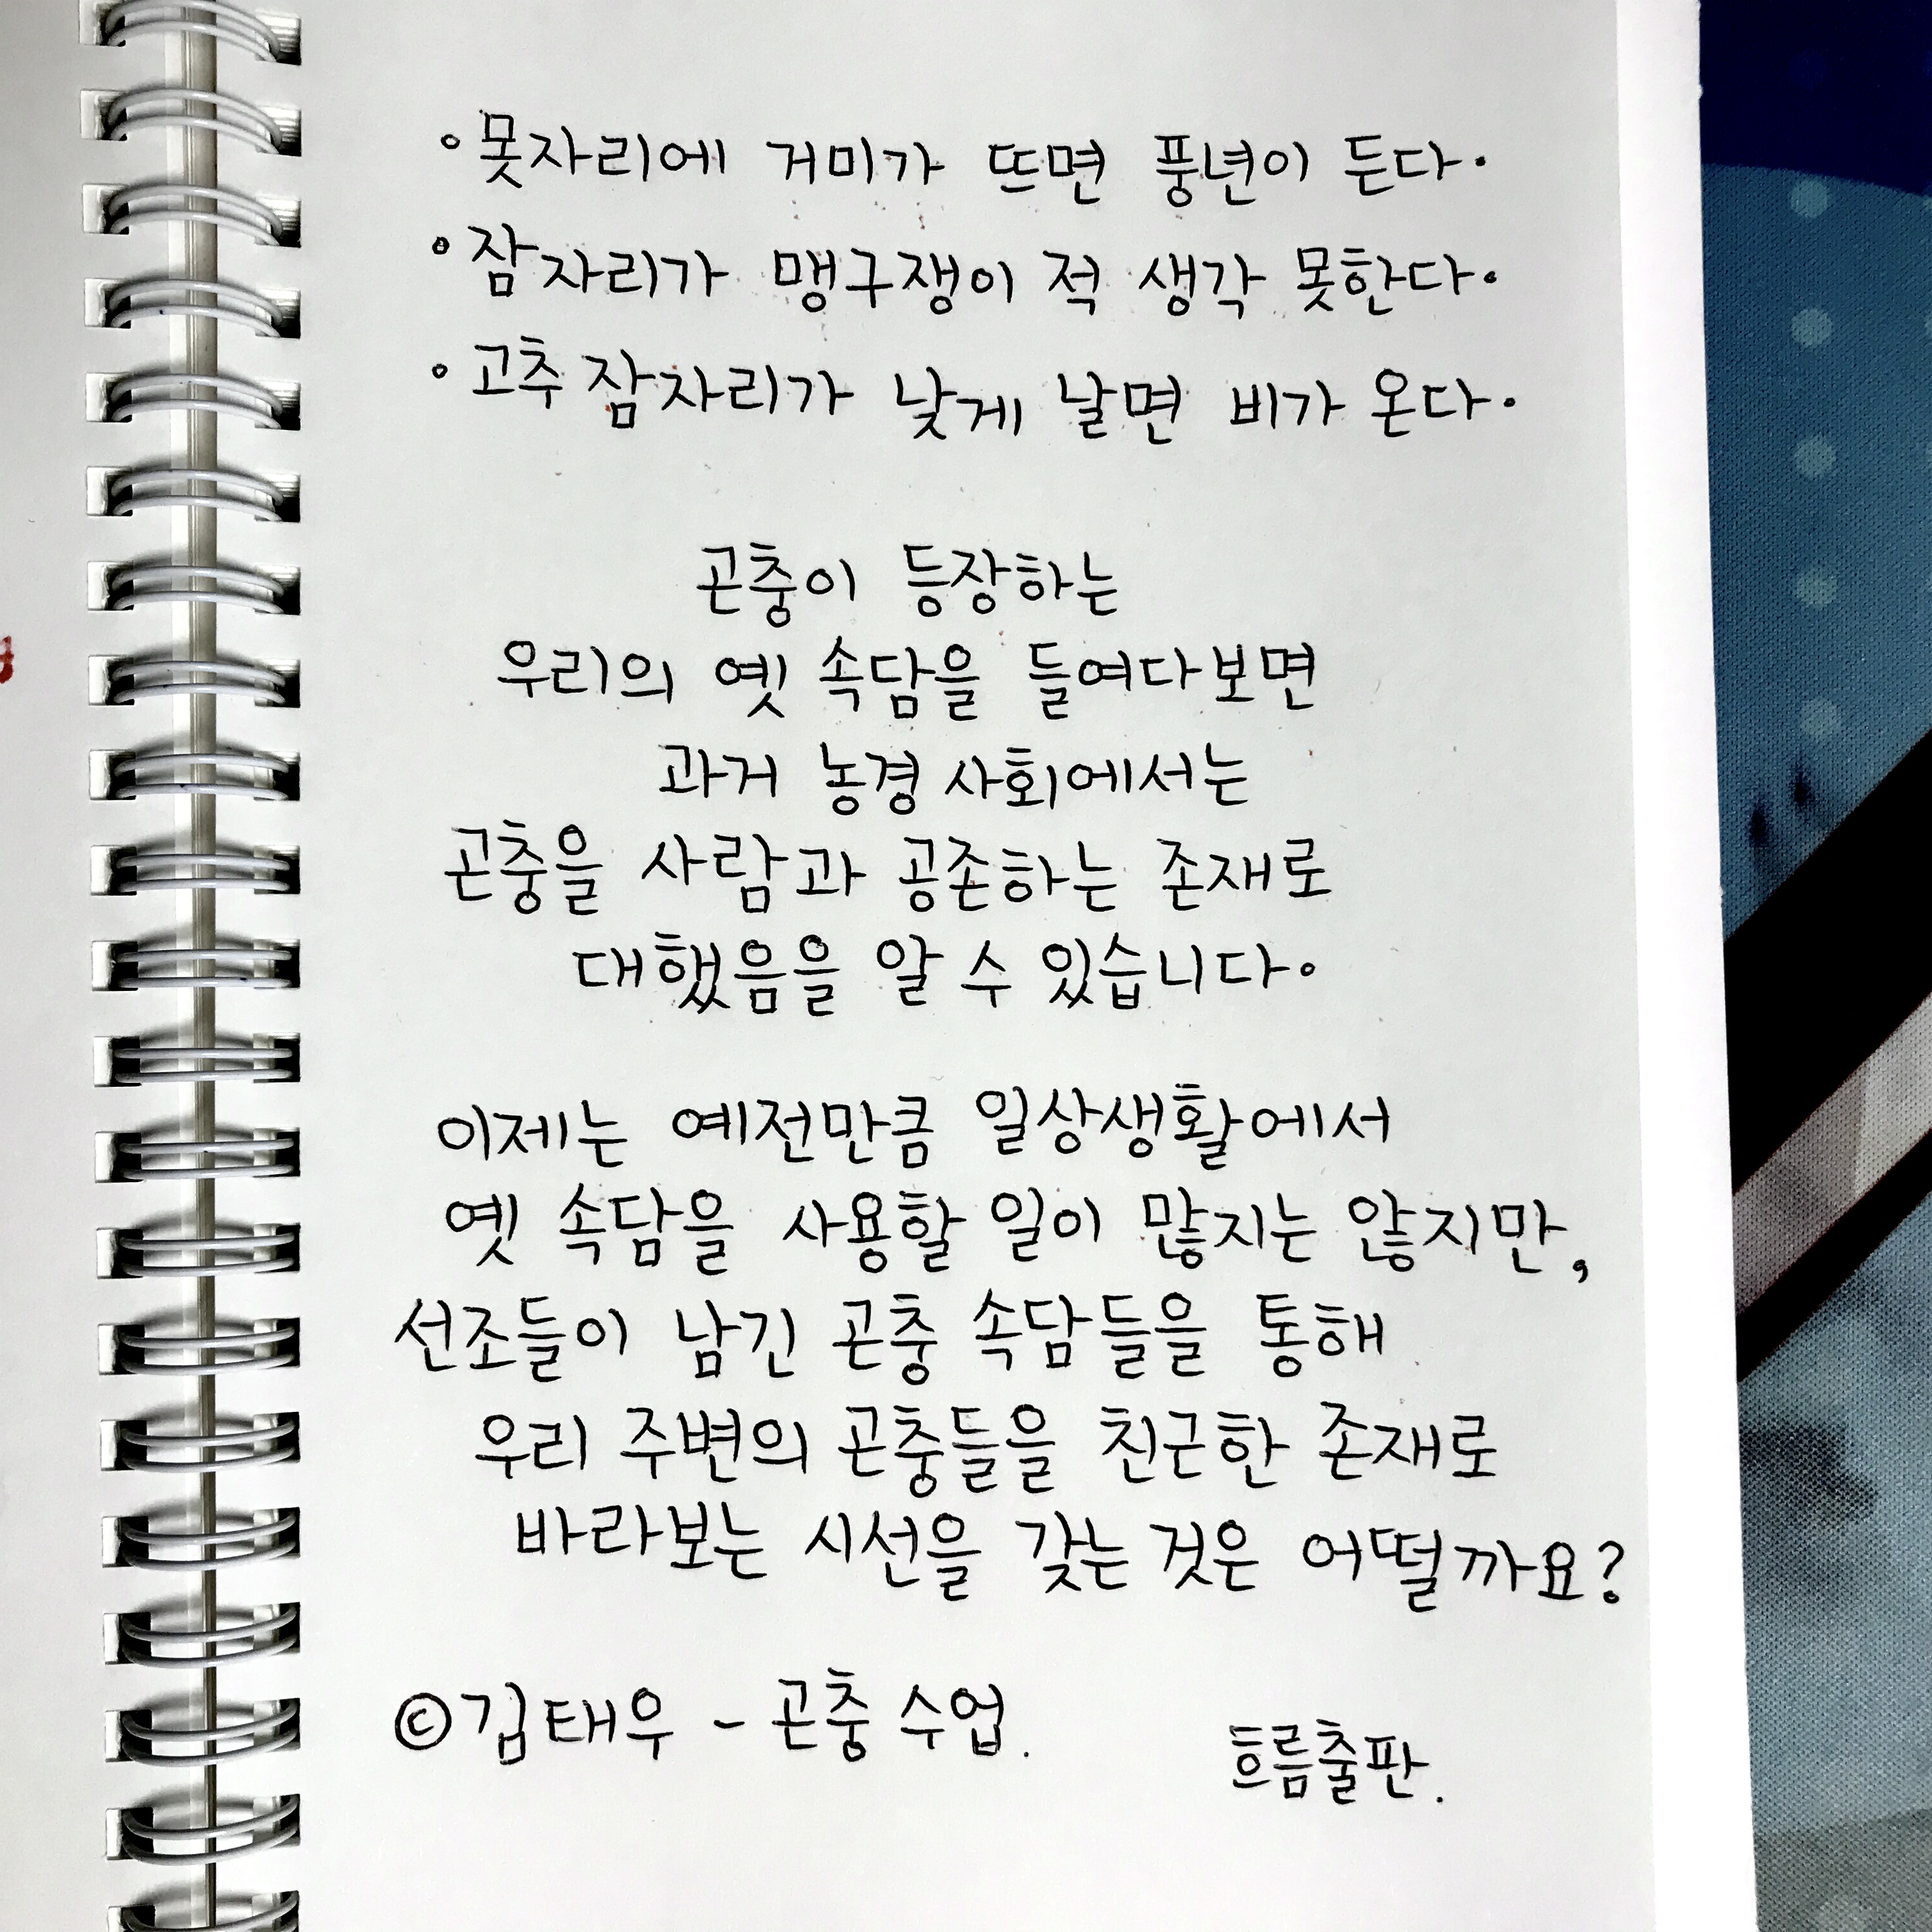 • 못자리에 거미가 뜨면 풍년이 든다.
• 잠자리가 맹구쟁이 적 생각 못한다.
• 고추잠자리가 낮게 날면 비가 온다.
곤충이 등장하는
우리의 옛 속담을 들여다보면
과거 농경 사회에서는
곤충을 사람과 공존하는 존재로
대했음을 알 수 있습니다.
이제는 예전만큼 일상생활에서
옛 속담을 사용할 일이 많지는 않지만,
선조들이 남긴 곤충 속담들을 통해
우리 주변의 곤충들을 친근한 존재로
바라보는 시선을 갖는 것은 어떨까요?
©김태우 - 곤충 수업.
흐름출판.